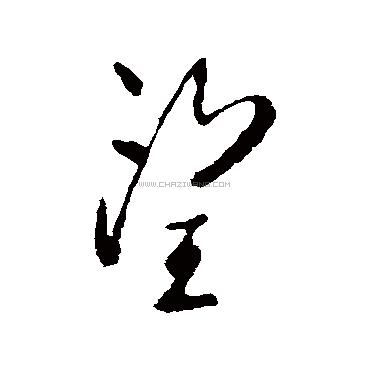 望
WWW.CHAZIWANG.COM